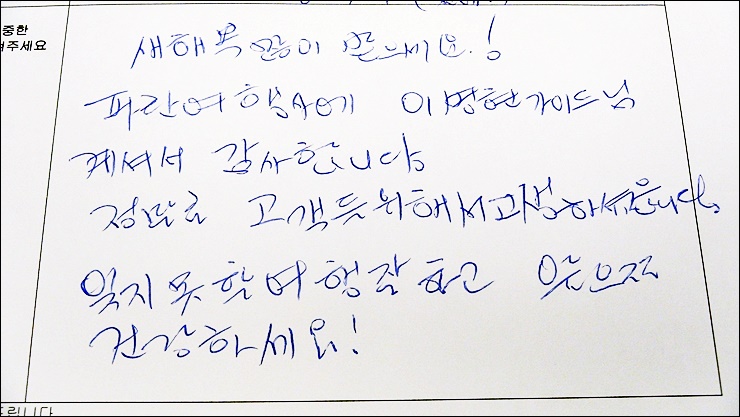 중한
여주세요
새해 복 많이 받으세요.!
파란여행사에 이명현가이드님
계셔서 감사합니다
정말로 고객들위해서고생하셨습니다.
잊지못할여행잘하고
건강하세요!
드립니다